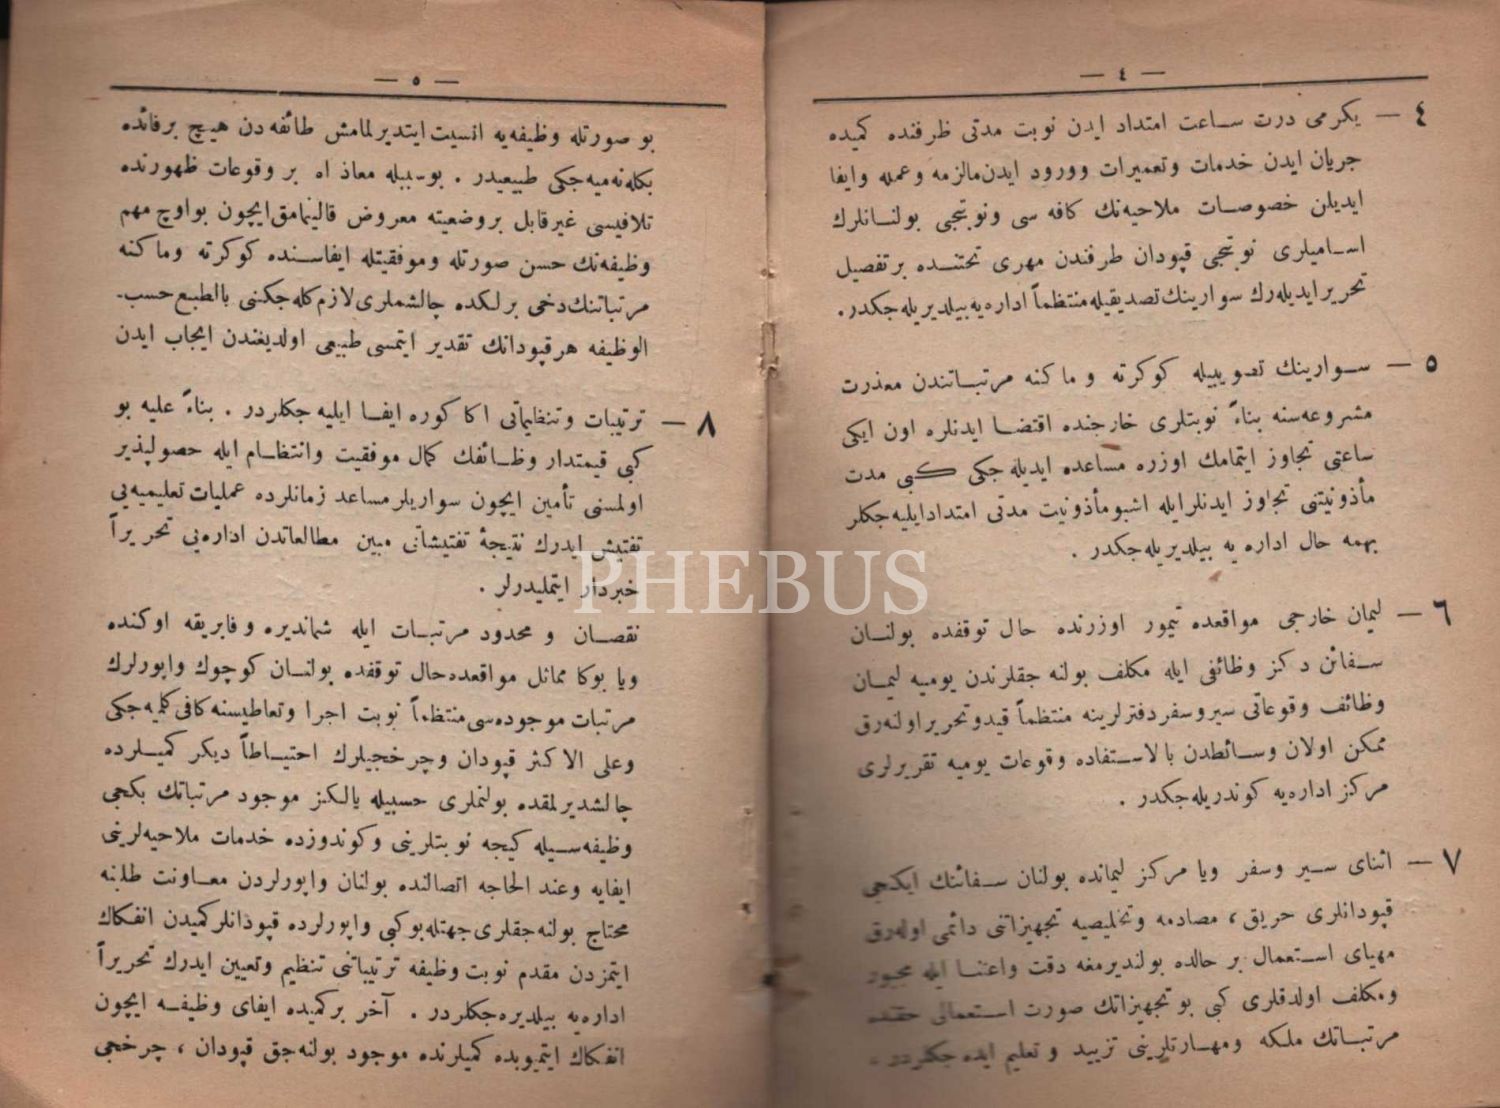 — ٤ —
٤ — يكرمی درت ساعت امتداد ايدن نوبت مدتی ظرفنده كميده
جريان ايدن خدمات وتعميرات وورود ايدن مالزمه وعمله وايفا
ايديلن خصوصات ملاحيه‌نك كافه سی ونوبتجی بولنانلرك
اساميلری نوبتجی قپودان طرفندن مهری تحتنده برتفصيل
تحرير ايديله‌رك سوارينك تصديقيله منتظماً اداره‌يه بيلديريله‌جكدر.
٥ — سوارينك تصويبيله كوكرته و ماكنه مرتباتندن معذرت
مشروعه‌سنه بناءً نوبتلری خارجنده اقتضا ايدنلره اون ايكی
ساعتی تجاوز ايتمامك اوزره مساعده ايديله جكی كبی مدت
مأذونيتنی تجاوز ايدنلرايله اشبومأذونيت مدتی امتدادايليه‌جكلر
بهمه حال اداره يه بيلديريله‌جكدر .
٦ — ليمان خارجی مواقعده تيمور اوزرنده حال توقفده بولنان
سفائن دكز وظائفی ايله مكلف بولنه جقلرندن يوميه ليمان
وظائف وقوعاتی سيروسفردفترلرينه منتظماً قيدوتحريراولنه‌رق
ممكن اولان وسائطدن بالاستفاده وقوعات يوميه تقريرلری
مركز اداره‌يه كوندريله‌جكدر .
٧ — اثنای سير وسفر ويا مركز ليمانده بولنان سفائنك ايكنجی
قپودانلری حريق ، مصادمه وتخليصيه تجهيزاتنی دائمی اوله‌رق
مهيای استعمال بر حالده بولنديرمغه دقت واعتنا ايله مجبور
ومكلف اولدقلری كبی بوتجهيزاتك صورت استعمالی حقنده
مرتباتك ملكه ومهارتلرينی تزييد و تعليم ايده‌جكلردر .
— ٥ —
بو صورتله وظيفه‌يه انسيت ايتديرلمامش طائفه‌دن هيچ برفائده
بكله‌نه‌ميه‌جكی طبيعيدر . بوسببله معاذ اه بر وقوعات ظهورنده
تلافيسی غيرقابل بروضعيته معروض قالينمامق ايچون بواوچ مهم
وظيفه‌نك حسن صورتله وموفقيتله ايفاسنده كوكرته وماكنه
مرتباتنك‌دخی برلكده چالشملری لازم كله‌جكنی بالطبع حسب‌ـ
الوظيفه هرقپودانك تقدير ايتمسی طبيعی اولديغندن ايجاب ايدن
٨ — ترتيبات وتنظيماتی اكا كوره ايفا ايليه جكلردر . بناءً عليه بو
كبی قيمتدار وظائفك كمال موفقيت وانتظام ايله حصولپذير
اولمسنی تأمين ايچون سواريلر مساعد زمانلرده عمليات تعليميه‌يی
تفتيش ايدرك نتيجهٔ تفتيشاتی مبين مطالعاتدن اداره‌يی تحريراً
خبردار ايتمليدرلر .
نقصان و محدود مرتبات ايله شمانديره وفابريقه اوكنده
ويا بوكا مماثل مواقعده‌حال توقفده بولنان كوچوك واپورلرك
مرتبات موجوده‌سی منتظماً نوبت اجرا وتعاطيسنه كافی كلميه‌جكی
وعلی الاكثر قپودان وچرخجيلرك احتياطاً ديكر كميلرده
چالشديرلمقده بولنملری حسبيله يالكز موجود مرتباتك بكجی
وظيفه‌سيله كيجه نوبتلرينی وكوندوزده خدمات ملاحيه‌لرينی
ايفايه وعند الحاجه اتصالنده بولنان واپورلردن معاونت طلبنه
محتاج بولنه‌جقلری جهتله‌بوكبی واپورلرده قپودانلركميدن انفكاك
ايتمزدن مقدم نوبت وظيفه ترتيباتنی تنظيم وتعيين ايدرك تحريراً
اداره‌يه بيلديره‌جكلردر . آخر بركميده ايفای وظيفه ايچون
انفكاك ايتميوبده كميلرنده موجود بولنه‌جق قپودان ، چرخجی
PHEBUS